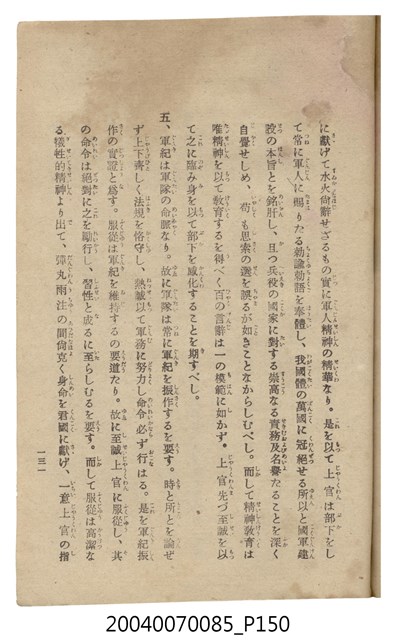 に獻げて水火尚辭せざるもの實に軍人精神の精華なり。是を以て上官は部下をし
て常に軍人に賜りたる勅諭勅語を奉體し、我國體の萬國に冠絶せる所以と國軍建
設の本旨とを銘肝し、且つ兵役の國家に對する崇高なる責務及名譽たることを深く
自覺せしめ、苟も思索の選を誤るが如きことなからしむべし。而して精神教育は
唯精神を以て教育するを得べく百の言辭は一の模範に如かず。上官先づ至誠を以
て之に臨み身を以て部下を感化することを期すべし。
五、軍紀は軍隊の命脈なり。故に軍隊は常に軍紀を振作するを要す。時と所とを論ぜ
ず上下齊しく法規を恪守し、熱誠以て軍務に努力し命令必ず行はる。是を軍紀振
作の實證と爲す。服從は軍紀を維持するの要道たり。故に至誠上官に服從し、其
の命令は絶對に之を勵行し、習性と成るに至らしむるを要す。而して服從は高潔な
る犧牲的精神より出で、彈丸雨注の間尚克く身命を君國に獻げ、一意上官の指
一三一
20040070085_P150